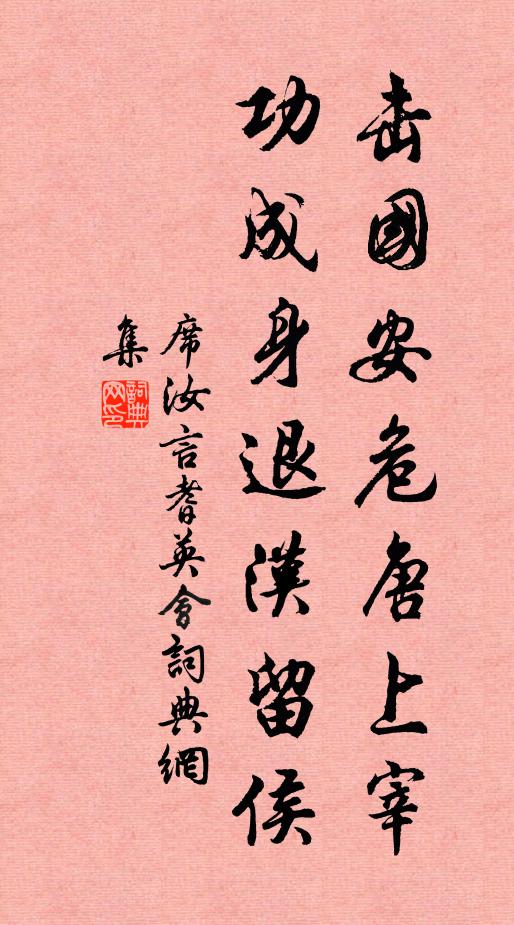 击國安危唐上宰
功成身退漢留侯
席汝言耆英會詞典網
集
詞典
网印